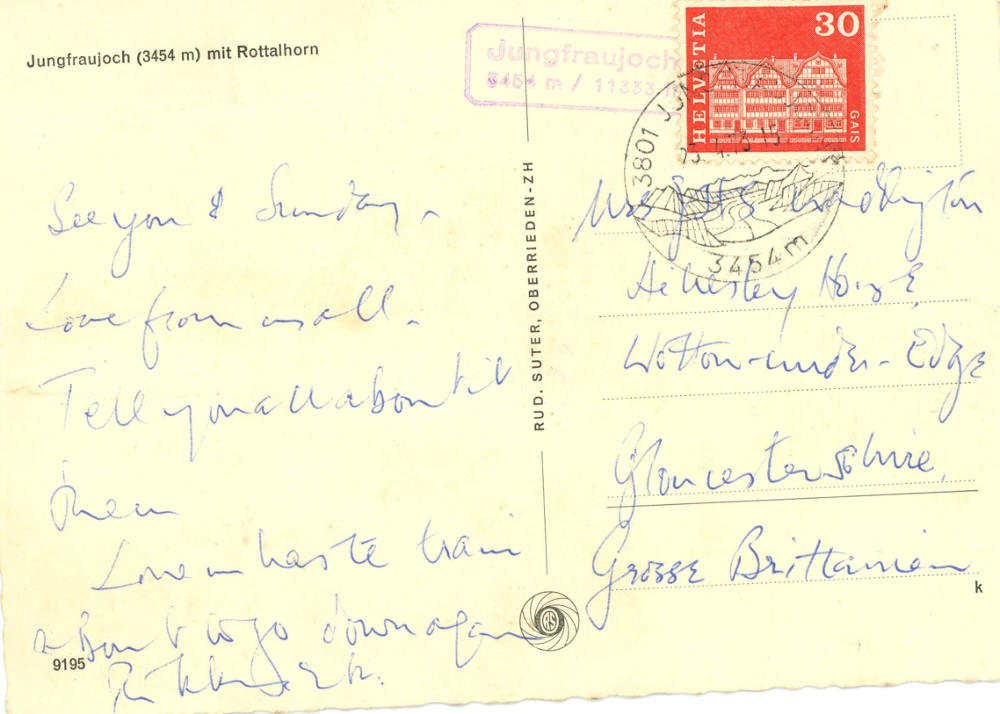 Jungfraujoch (3454 m) mit Rottalhorn
See you Sunday
Love from us all.
Tell you all about it
then
Love in haste train
about to go down again
9195
RUD. SUTER, OBERRIEDEN-ZH
RS
Jungfraujoch
3454 m / 11333
HELVETIA
30
GAIS
3801
3454 m
Waddington
House,
Wotton-under-Edge
Gloucestershire,
Grosse Brittanien
k